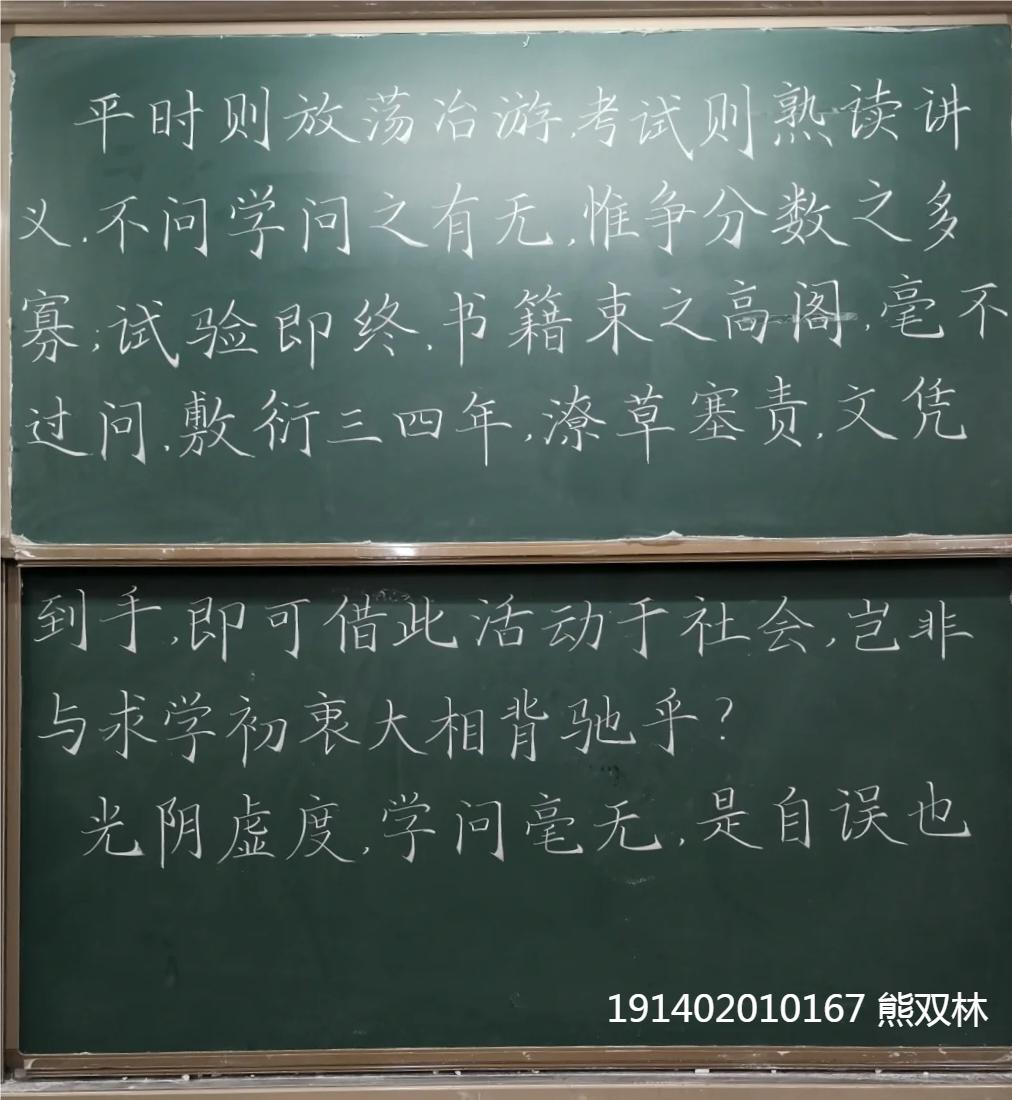 平时则放荡冶游,考试则熟读讲
义,不问学问之有无,惟争分数之多
寡;试验即终,书籍束之高阁,毫不
过问,敷衍三四年,潦草塞责,文凭
到手,即可借此活动于社会,岂非
与求学初衷大相背驰乎?
光阴虚度,学问毫无,是自误也
191402010167 熊双林